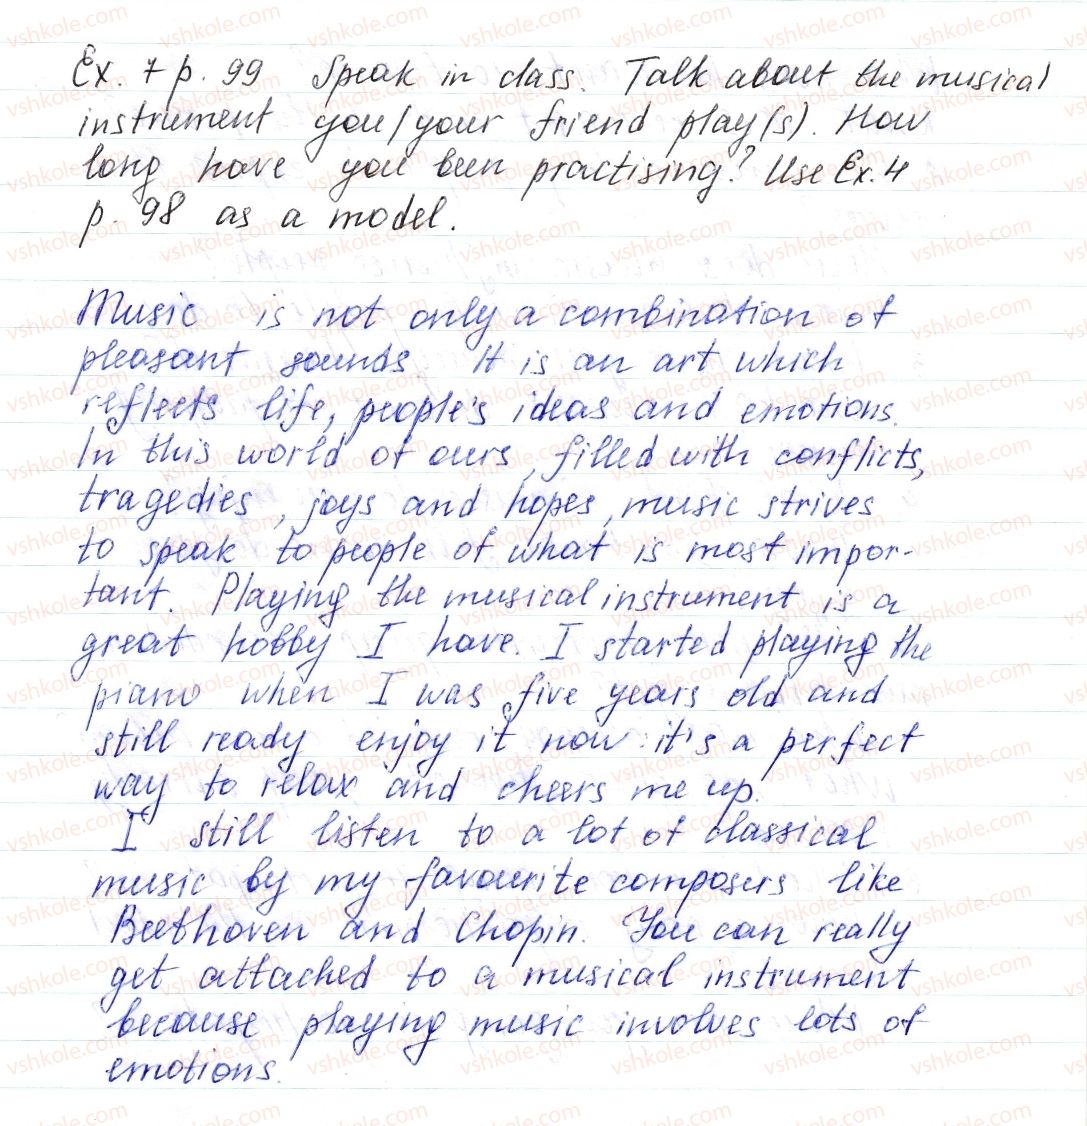 Ex. 7 p. 99 Speak in class. Talk about the musical
instrument you/your friend play(s). How
long have you been practising? Use Ex. 4
p. 98 as a model.
Music is not only a combination of
pleasant sounds. It is an art which
reflects life, people's ideas and emotions.
In this world of ours, filled with conflicts,
tragedies, joys and hopes, music strives
to speak to people of what is most impor-
tant. Playing the musical instrument is a
great hobby I have. I started playing the
piano when I was five years old and
still ready enjoy it now: it's a perfect
way to relax and cheers me up.
I still listen to a lot of classical
music by my favourite composers like
Beethoven and Chopin. You can really
get attached to a musical instrument
because playing music involves lots of
emotions.
vshkole.com